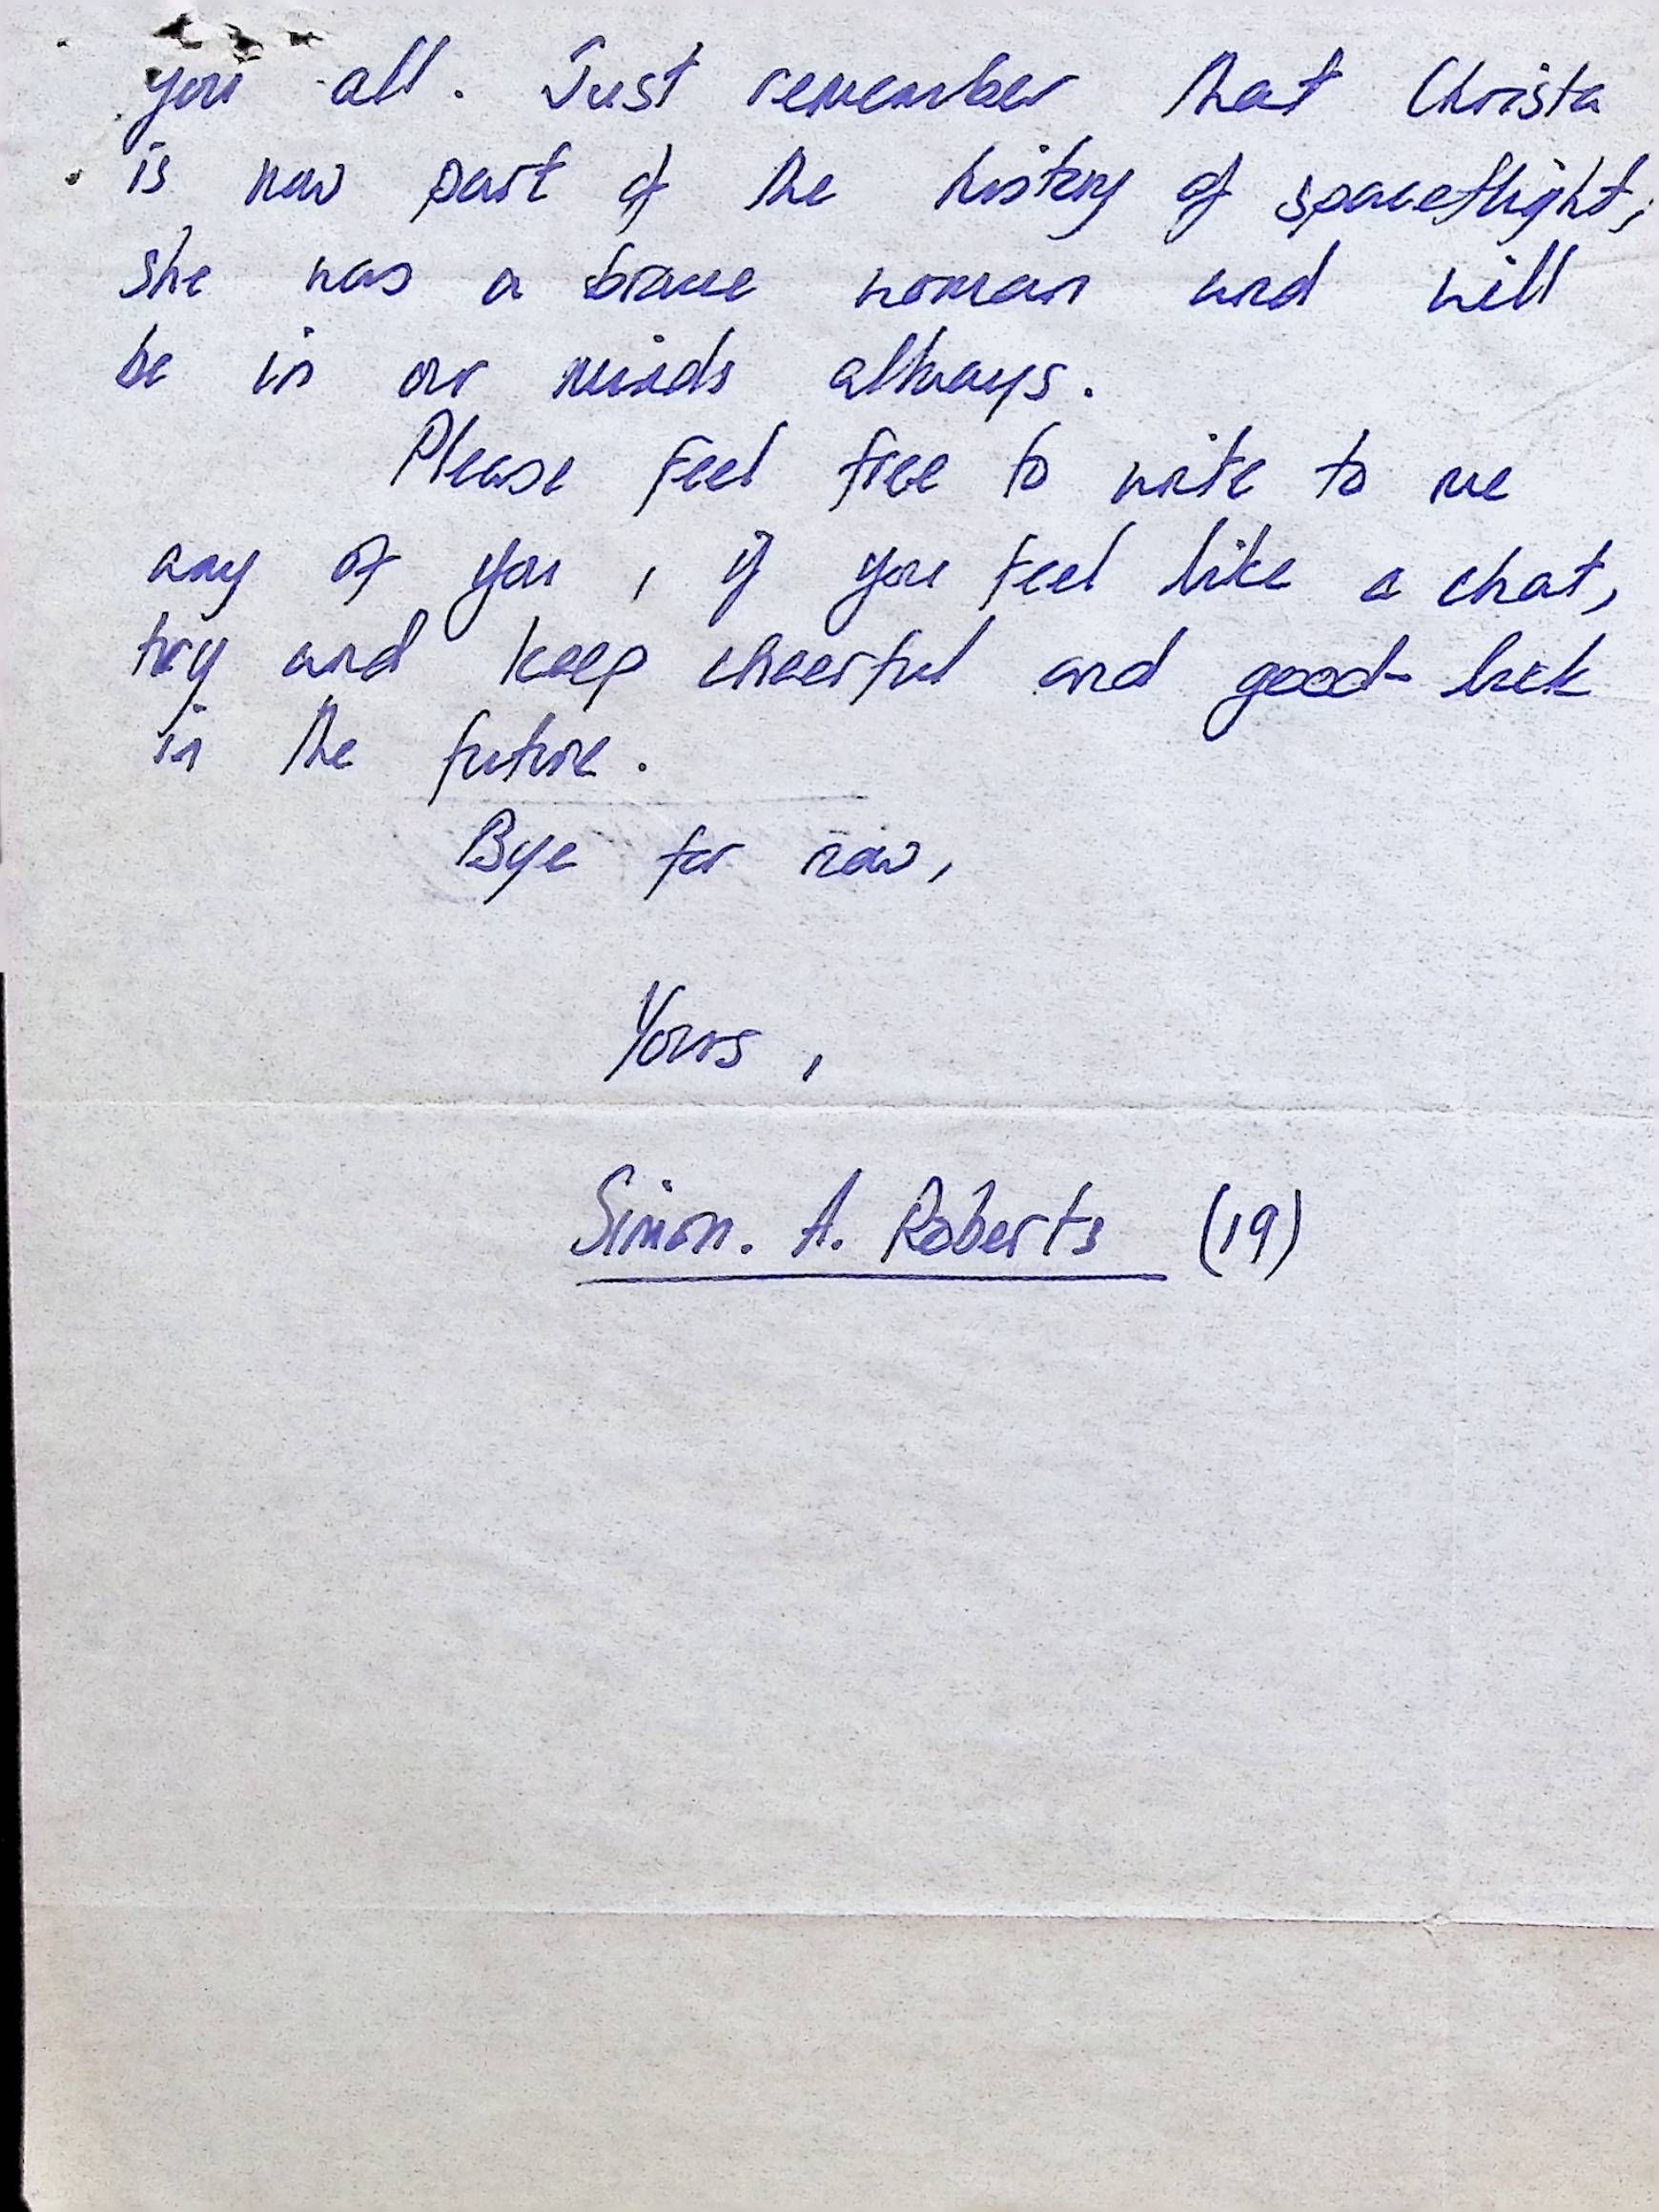 you all. Just remember that Christa
is now part of the history of spaceflight,
she was a brave woman and will
be in our minds allways.
Please feel free to write to me
any of you, if you feel like a chat,
try and keep cheerful and good-luck
in the future.
Bye for now,
Yours,
Simon. A. Roberts (19)